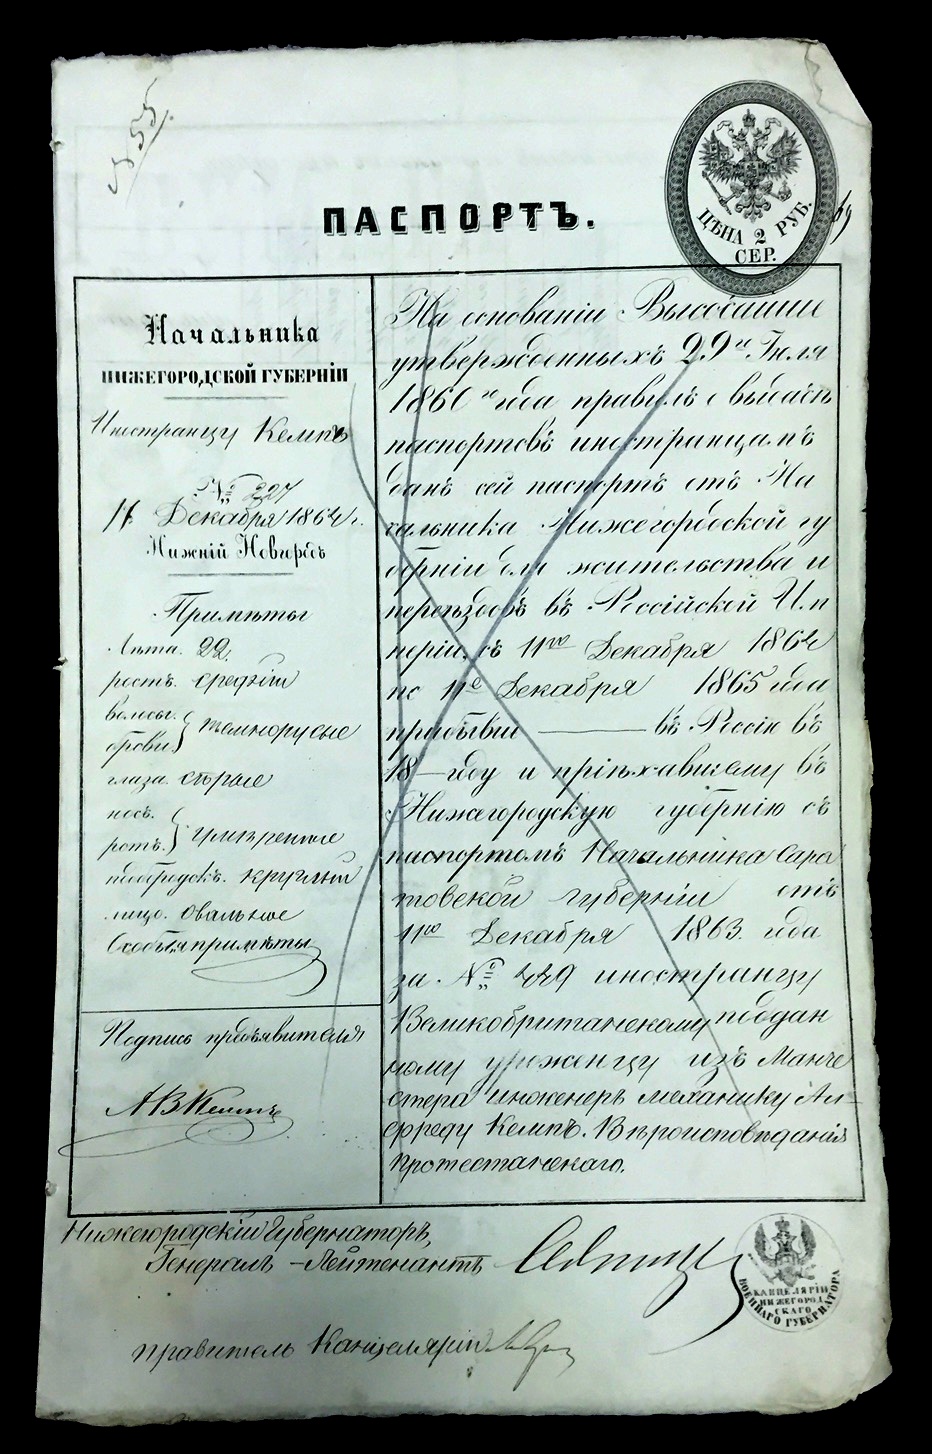 № 55.
ЦѢНА 2 РУБ.
СЕР.
ПАСПОРТЪ.
Начальника
НИЖЕГОРОДСКОЙ ГУБЕРНІИ
Иностранцу Кемпъ
№ 227
11 Декабря 1864 г.
Нижній Новгородъ
Примѣты
Лѣта. 22.
ростъ. средній
волосы.
брови. темнорусые
глаза. сѣрые
носъ.
ротъ. умѣренные
подбородокъ. круглый
лицо. овальное
Особыя примѣты
Подпись предъявителя
А В Кемпъ
На основаніи Высочайше
утвержденныхъ 29го Іюля
1860го года правилъ о выдачѣ
паспортовъ иностранцамъ
данъ сей паспортъ отъ На
чальника Нижегородской гу
берніи для жительства и
переѣздовъ въ Россійской Им
періи, съ 11го Декабря 1864
по 11е Декабря 1865 года
прибывш — въ Россію въ
18— году и пріѣхавшему въ
Нижегородскую губернію съ
паспортомъ Начальника Сара
товской губерніи отъ
11го Декабря 1863. года
за № 229 иностранцу
Великобританскому поддан
ному уроженцу изъ Манче
стера инженеръ механику Ал-
фреду Кемпъ. Вѣроисповѣданія
Протестанскаго.
Нижегородскій Губернаторъ,
Генералъ-Лейтенантъ
Правитель Канцеляріи
КАНЦЕЛЯРІИ
НИЖЕГОРОД
СКАГО
ВОЕННАГО ГУБЕРНАТОРА